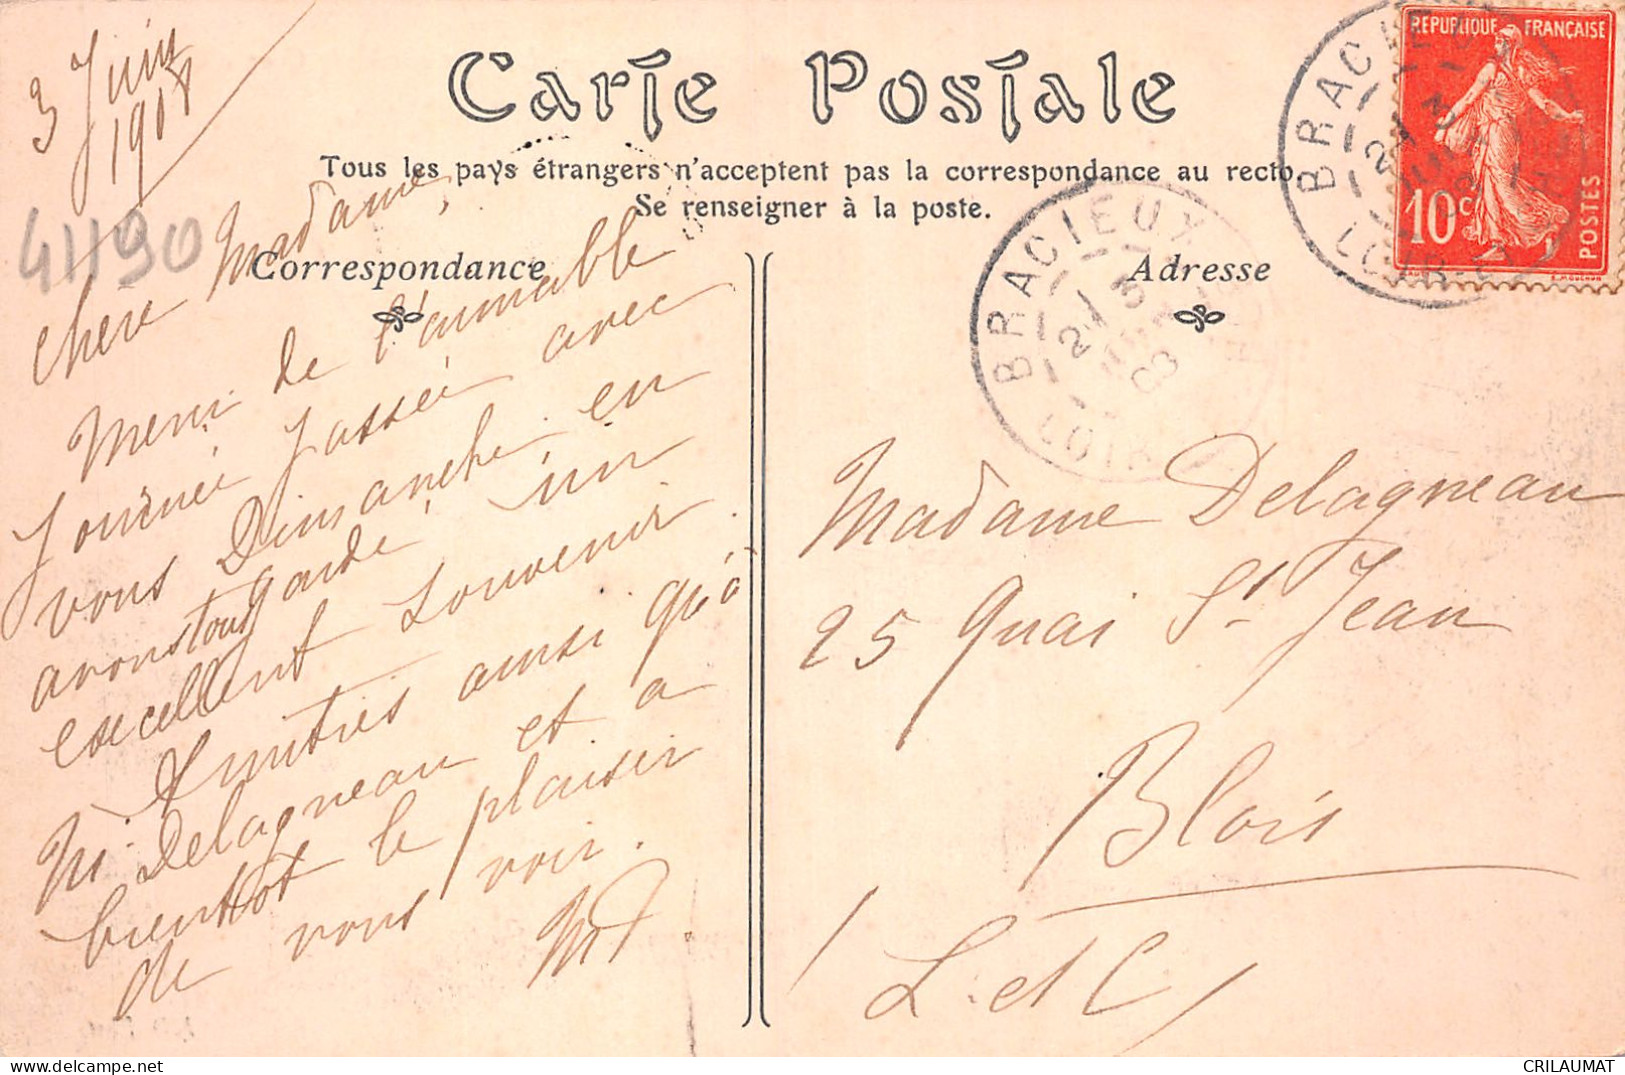 Carte Postale
Tous les pays étrangers n'acceptent pas la correspondance au recto.
Se renseigner à la poste.
Correspondance
Adresse
3 Juin
1908
41190
Chere Madame,
Merci de l'aimable
Journée passée avec
vous Dimanche, en
avons tous gardé un
excellent souvenir.
Amitiés ainsi qu'à
M. Delagneau et a
bientôt le plaisir
de vous voir.
Madame Delagneau
25 Quai St Jean
Blois
L. et C.
BRACIEUX
LOIR
08
BRACIEUX
LOIR-
RÉPUBLIQUE FRANÇAISE
10c
POSTES
CRILAUMAT